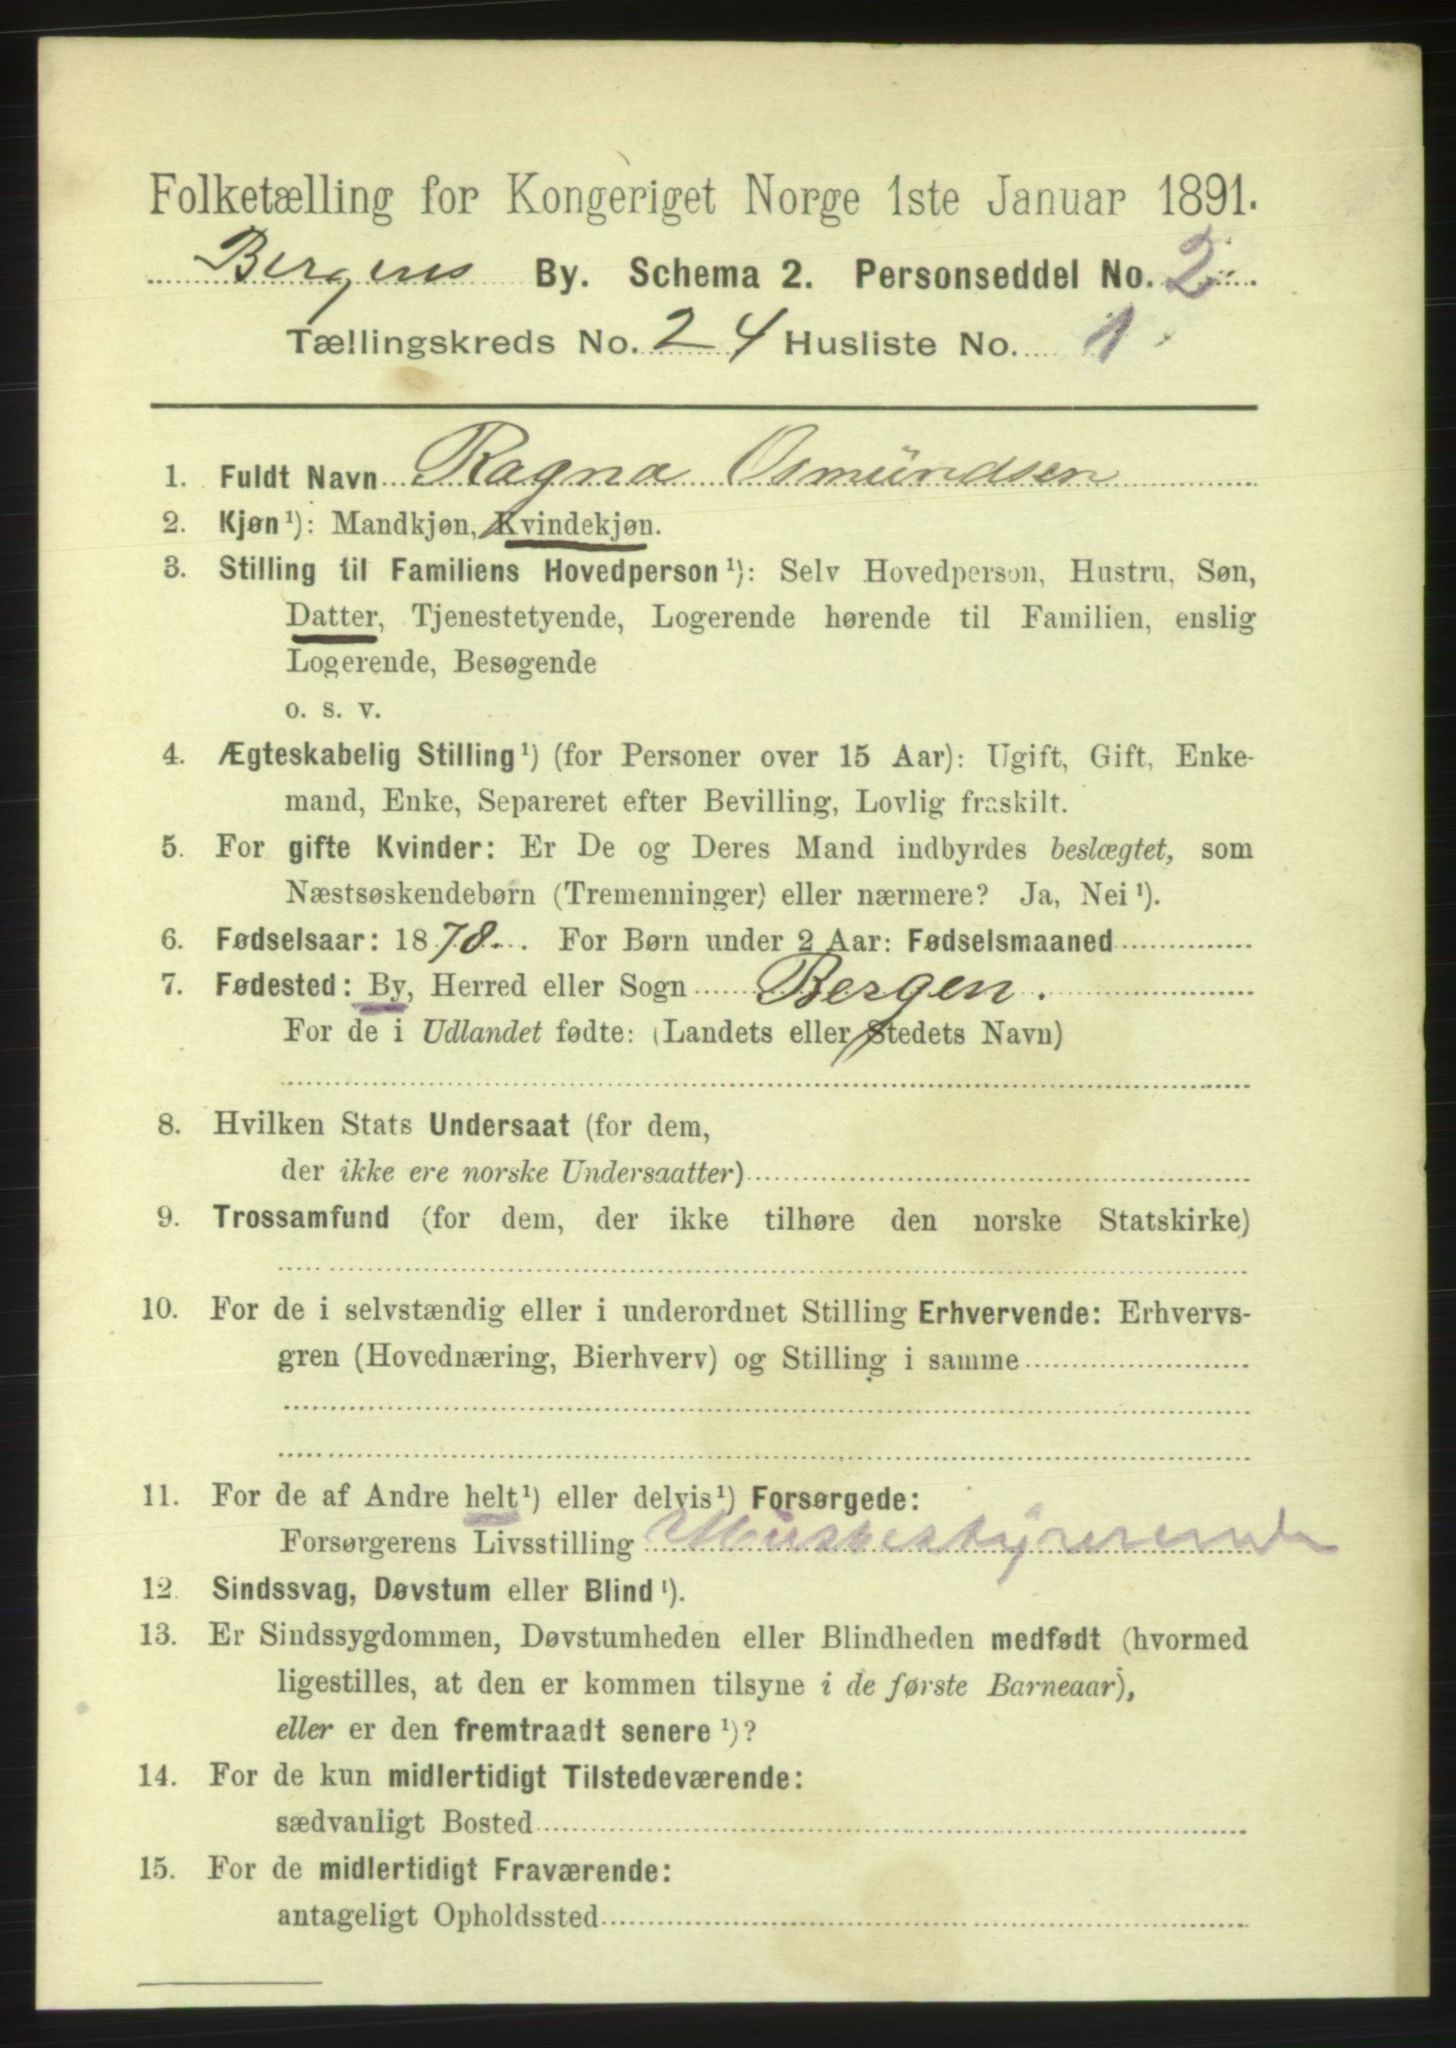 Folketælling for Kongeriget Norge 1ste Januar 1891.
Bergens By. Schema 2. Personseddel No. 2
Tællingskreds No. 24 Husliste No. 1.
1. Fuldt Navn Ragna Osmŭndsen
2. Kjøn¹): Mandkjøn, Kvindekjøn.
3. Stilling til Familiens Hovedperson¹): Selv Hovedperson, Hustru, Søn,
Datter, Tjenestetyende, Logerende hørende til Familien, enslig
Logerende, Besøgende
o. s. v.
4. Ægteskabelig Stilling¹) (for Personer over 15 Aar): Ugift, Gift, Enke-
mand, Enke, Separeret efter Bevilling, Lovlig fraskilt.
5. For gifte Kvinder: Er De og Deres Mand indbyrdes beslægtet, som
Næstsøskendebørn (Tremenninger) eller nærmere? Ja, Nei¹).
6. Fødselsaar: 1878. For Børn under 2 Aar: Fødselsmaaned
7. Fødested: By, Herred eller Sogn Bergen.
For de i Udlandet fødte: (Landets eller Stedets Navn)
8. Hvilken Stats Undersaat (for dem,
der ikke ere norske Undersaatter)
9. Trossamfund (for dem, der ikke tilhøre den norske Statskirke)
10. For de i selvstændig eller i underordnet Stilling Erhvervende: Erhvervs-
gren (Hovednæring, Bierhverv) og Stilling i samme
11. For de af Andre helt¹) eller delvis¹) Forsørgede:
Forsørgerens Livsstilling
12. Sindssvag, Døvstum eller Blind¹).
13. Er Sindssygdommen, Døvstumheden eller Blindheden medfødt (hvormed
ligestilles, at den er kommen tilsyne i de første Barneaar),
eller er den fremtraadt senere¹)?
14. For de kun midlertidigt Tilstedeværende:
sædvanligt Bosted
15. For de midlertidigt Fraværende:
antageligt Opholdssted